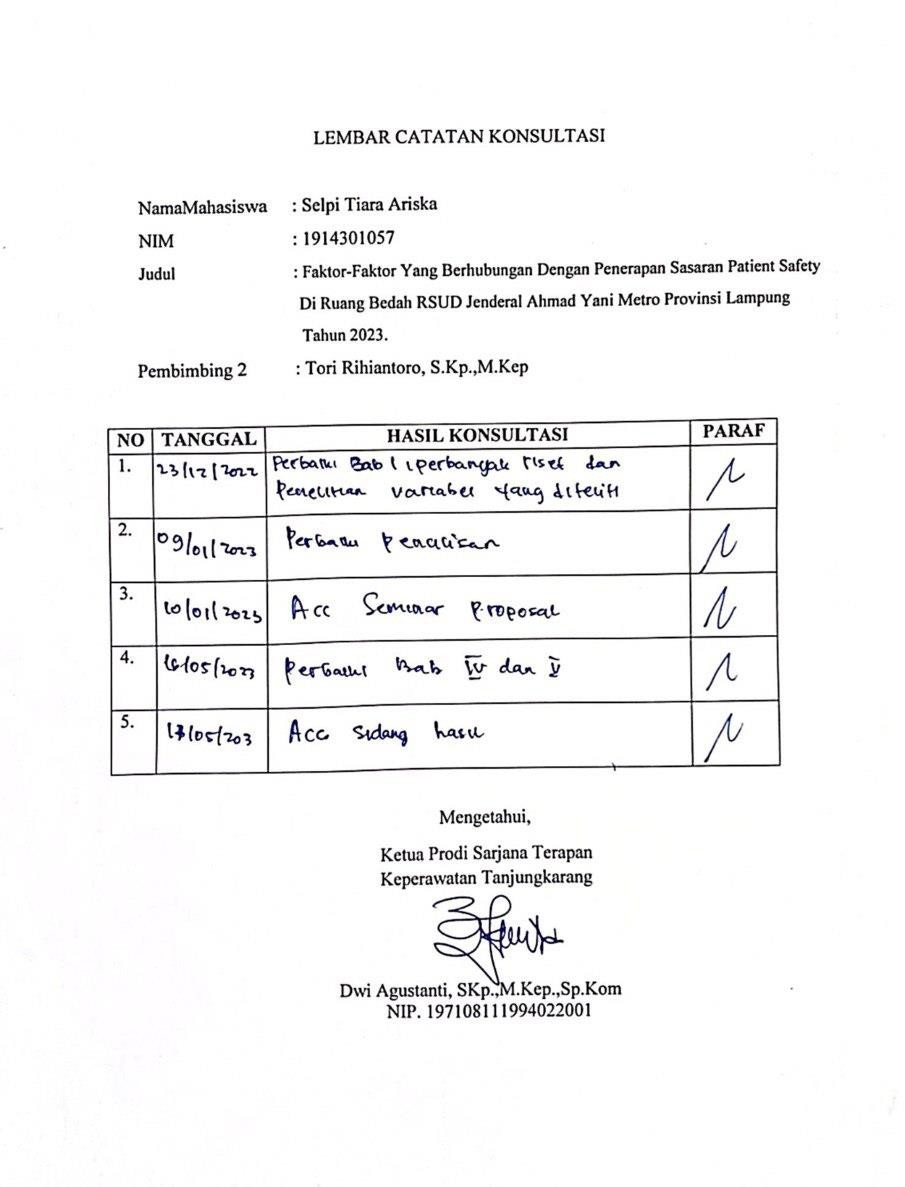 LEMBAR CATATAN KONSULTASI
NamaMahasiswa : Selpi Tiara Ariska
NIM : 1914301057
Judul : Faktor-Faktor Yang Berhubungan Dengan Penerapan Sasaran Patient Safety
Di Ruang Bedah RSUD Jenderal Ahmad Yani Metro Provinsi Lampung
Tahun 2023.
Pembimbing 2 : Tori Rihiantoro, S.Kp.,M.Kep
NO TANGGAL HASIL KONSULTASI PARAF
1. 23/12/2022 Perbaiki Bab I, perbanyak riset dan
Penelitian variabel yang diteliti
2. 09/01/2023 Perbaiki Penulisan
3. 10/01/2023 Acc Seminar Proposal
4. 16/05/2023 Perbaiki Bab IV dan V
5. 17/05/203 Acc sidang hasil
Mengetahui,
Ketua Prodi Sarjana Terapan
Keperawatan Tanjungkarang
Dwi Agustanti, SKp.,M.Kep.,Sp.Kom
NIP. 197108111994022001